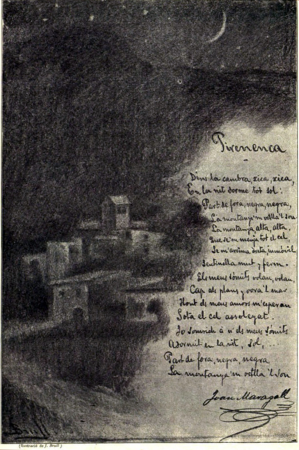 Pirenenca
Dins la cambra, xica, xica,
En la nit dormo tot sol:
Part de fora, negra, negra,
La montanya 'm vetlla 'l son
La montanya alta, alta,
Que se 'm menja tot el cel
Se m'estima dreta, immòbil
Sentinella mut y ferm.
Els meus somits volan, volan
Cap als plans, vora 'l mar
Hont de meus amors m'esperan
Sota el cel assoleyat.
Jo somrich a n' els meus somits
Adormit en la nit, sol, ...
Part de fora, negra, negra
La montanya 'm vetlla 'l son
Joan Maragall
Brull
(Ilustració de J. Brull)